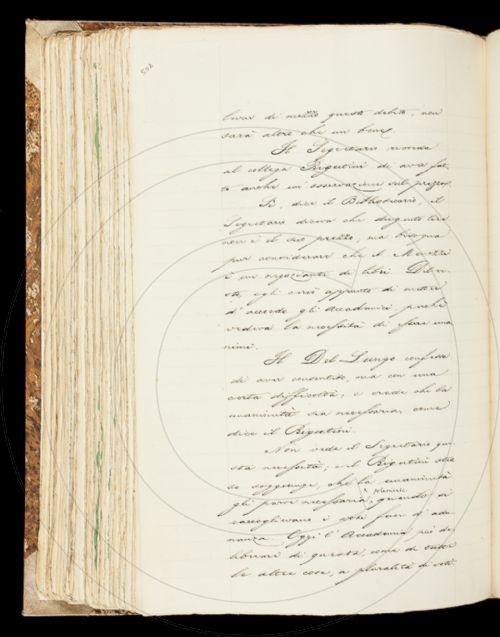 502
levar di mezzo questo debito, non
sarà altro che un bene.
Il Segretario ricorda
al collega Rigutini di aver fat-
to anche un'osservazione sul prezzo.
Sì, dice il Bibliotecario, il
Segretario diceva che dugento lire
non è il suo prezzo; ma bisogna
pur considerare che il
è un negoziante di libri. Del re-
sto, egli cercò appunto di mettere
d'accordo gli Accademici, perché
vedeva la necessità di essere una-
nimi.
Il Del Lungo confessa
di aver consentito, ma con una
certa difficoltà; e crede che la
unanimità sia necessaria, come
dice il Rigutini.
Non vede il Segretario que-
sta necessità; e il Rigutini
soggiunge, che la unanimità
gli pareva necessaria solamente, quando si
raccoglievano i voti fuor d'adu-
nanza. Oggi l'Accademia può de-
liberare di questa, come di tutte
le altre cose, a pluralità di voti.